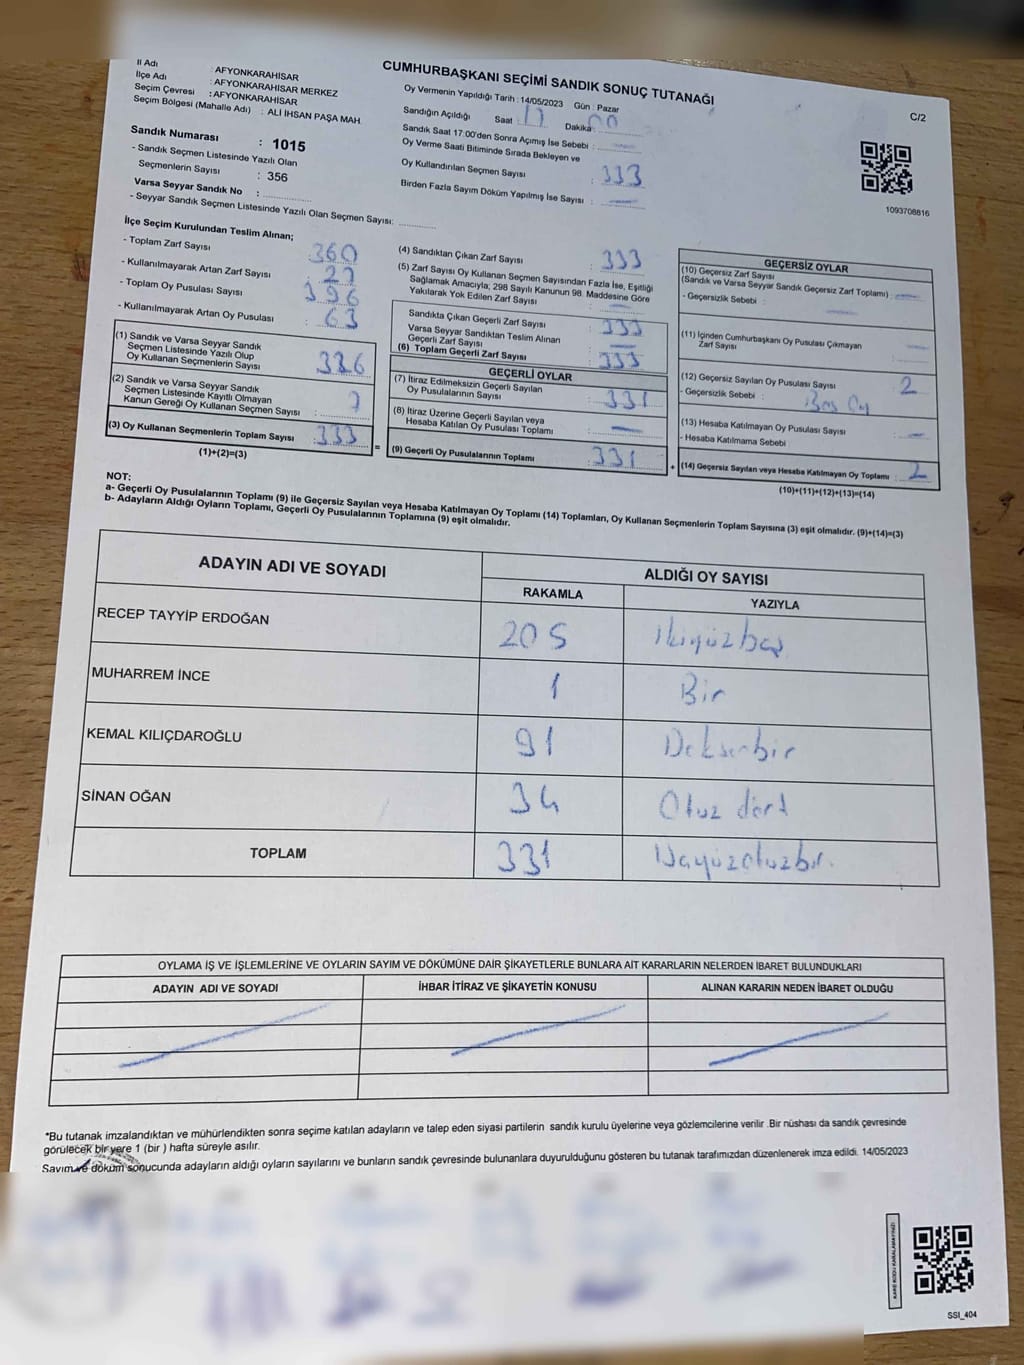 CUMHURBAŞKANI SEÇİMİ SANDIK SONUÇ TUTANAĞI
C/2
İl Adı : AFYONKARAHİSAR
İlçe Adı : AFYONKARAHİSAR MERKEZ
Seçim Çevresi : AFYONKARAHİSAR
Seçim Bölgesi (Mahalle Adı) : ALİ İHSAN PAŞA MAH.
Sandık Numarası : 1015
- Sandık Seçmen Listesinde Yazılı Olan
Seçmenlerin Sayısı : 356
Varsa Seyyar Sandık No :
- Seyyar Sandık Seçmen Listesinde Yazılı Olan Seçmen Sayısı:
Oy Vermenin Yapıldığı Tarih : 14/05/2023 Gün : Pazar
Sandığın Açıldığı Saat : 17 Dakika : 00
Sandık Saat 17:00'den Sonra Açımış İse Sebebi :
Oy Verme Saati Bitiminde Sırada Bekleyen ve
Oy Kullandırılan Seçmen Sayısı : 333
Birden Fazla Sayım Döküm Yapılmış İse Sayısı : —
1093708816
İlçe Seçim Kurulundan Teslim Alınan;
- Toplam Zarf Sayısı : 360
- Kullanılmayarak Artan Zarf Sayısı : 27
- Toplam Oy Pusulası Sayısı : 396
- Kullanılmayarak Artan Oy Pusulası : 63
(1) Sandık ve Varsa Seyyar Sandık
Seçmen Listesinde Yazılı Olup
Oy Kullanan Seçmenlerin Sayısı : 326
(2) Sandık ve Varsa Seyyar Sandık
Seçmen Listesinde Kayıtlı Olmayan
Kanun Gereği Oy Kullanan Seçmen Sayısı : 7
(3) Oy Kullanan Seçmenlerin Toplam Sayısı : 333
(1)+(2)=(3)
=
(4) Sandıktan Çıkan Zarf Sayısı : 333
(5) Zarf Sayısı Oy Kullanan Seçmen Sayısından Fazla İse, Eşitliği
Sağlamak Amacıyla; 298 Sayılı Kanunun 98. Maddesine Göre
Yakılarak Yok Edilen Zarf Sayısı : —
Sandıkta Çıkan Geçerli Zarf Sayısı : 333
Varsa Seyyar Sandıktan Teslim Alınan
Geçerli Zarf Sayısı : —
(6) Toplam Geçerli Zarf Sayısı : 333
GEÇERLİ OYLAR
(7) İtiraz Edilmeksizin Geçerli Sayılan
Oy Pusulalarının Sayısı : 331
(8) İtiraz Üzerine Geçerli Sayılan veya
Hesaba Katılan Oy Pusulası Toplamı : —
(9) Geçerli Oy Pusulalarının Toplamı : 331
+
GEÇERSİZ OYLAR
(10) Geçersiz Zarf Sayısı
(Sandık ve Varsa Seyyar Sandık Geçersiz Zarf Toplamı) : —
- Geçersizlik Sebebi : —
(11) İçinden Cumhurbaşkanı Oy Pusulası Çıkmayan
Zarf Sayısı : —
(12) Geçersiz Sayılan Oy Pusulası Sayısı : 2
- Geçersizlik Sebebi : Boş Oy
(13) Hesaba Katılmayan Oy Pusulası Sayısı : —
- Hesaba Katılmama Sebebi
(14) Geçersiz Sayılan veya Hesaba Katılmayan Oy Toplamı : 2
(10)+(11)+(12)+(13)=(14)
NOT:
a- Geçerli Oy Pusulalarının Toplamı (9) ile Geçersiz Sayılan veya Hesaba Katılmayan Oy Toplamı (14) Toplamları, Oy Kullanan Seçmenlerin Toplam Sayısına (3) eşit olmalıdır. (9)+(14)=(3)
b- Adayların Aldığı Oyların Toplamı, Geçerli Oy Pusulalarının Toplamına (9) eşit olmalıdır.
ADAYIN ADI VE SOYADI ALDIĞI OY SAYISI
RAKAMLA YAZIYLA
RECEP TAYYİP ERDOĞAN 205 İkiyüzbeş
MUHARREM İNCE 1 Bir
KEMAL KILIÇDAROĞLU 91 Doksanbir
SİNAN OĞAN 34 Otuz dört
TOPLAM 331 Üçyüzotuzbir.
OYLAMA İŞ VE İŞLEMLERİNE VE OYLARIN SAYIM VE DÖKÜMÜNE DAİR ŞİKAYETLERLE BUNLARA AİT KARARLARIN NELERDEN İBARET BULUNDUKLARI
ADAYIN ADI VE SOYADI İHBAR İTİRAZ VE ŞİKAYETİN KONUSU ALINAN KARARIN NEDEN İBARET OLDUĞU
*Bu tutanak imzalandıktan ve mühürlendikten sonra seçime katılan adayların ve talep eden siyasi partilerin sandık kurulu üyelerine veya gözlemcilerine verilir .Bir nüshası da sandık çevresinde
görülecek bir yere 1 (bir ) hafta süreyle asılır.
Sayım ve döküm sonucunda adayların aldığı oyların sayılarını ve bunların sandık çevresinde bulunanlara duyurulduğunu gösteren bu tutanak tarafımızdan düzenlenerek imza edildi. 14/05/2023
KARE KODU KARALAMAYINIZ!
SSI_404